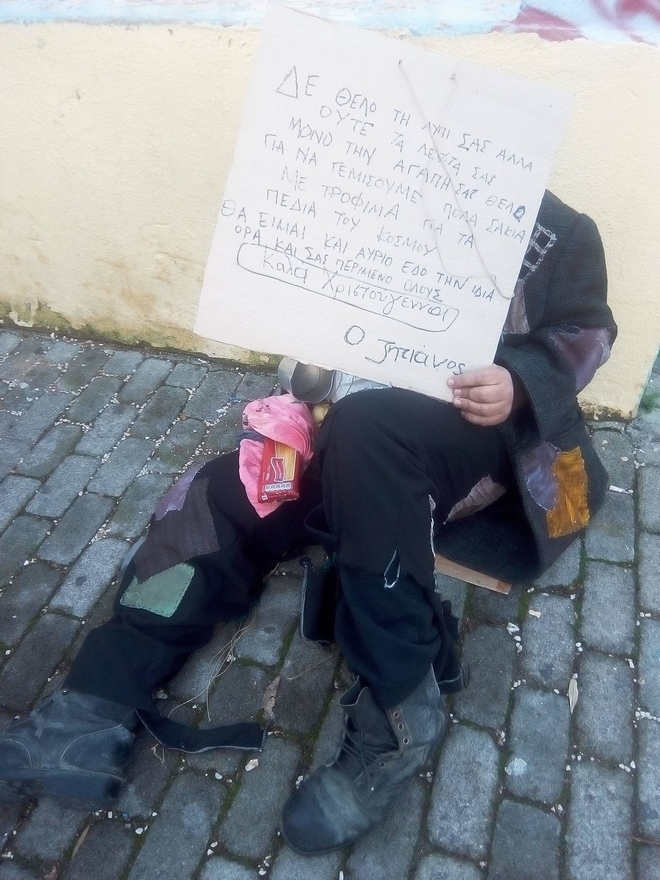 ΔΕ ΘΕΛΟ ΤΗ ΛΥΠΙ ΣΑΣ ΑΛΛΑ
ΟΥΤΕ ΤΑ ΛΕΥΤΑ ΣΑΣ
ΜΟΝΟ ΤΗΝ ΑΓΑΠΗ ΣΑΣ ΘΕΛΟ
ΓΙΑ ΝΑ ΓΕΜΙΣΟΥΜΕ ΠΟΛΑ ΣΑΚΙΑ
ΜΕ ΤΡΟΦΙΜΑ ΓΙΑ ΤΑ
ΠΕΔΙΑ ΤΟΥ ΚΟΣΜΟΥ
ΘΑ ΕΙΜΑΙ ΚΑΙ ΑΥΡΙΟ ΕΔΟ ΤΗΝ ΙΔΙΑ
ΟΡΑ ΚΑΙ ΣΑΣ ΠΕΡΙΜΕΝΟ ΟΛΟΥΣ
Καλα Χριστουγεννα
Ο Ζητιάνος